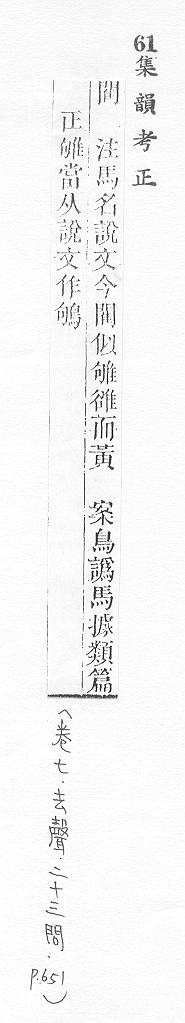 61集韻考正
閵　注馬名說文今閵似雊而黃　案鳥譌馬據類篇
正雊當从說文作鴝
(卷七.去聲.二十三問.p.651)